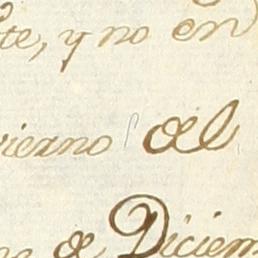 te, y no en
vierno del
de Diciem